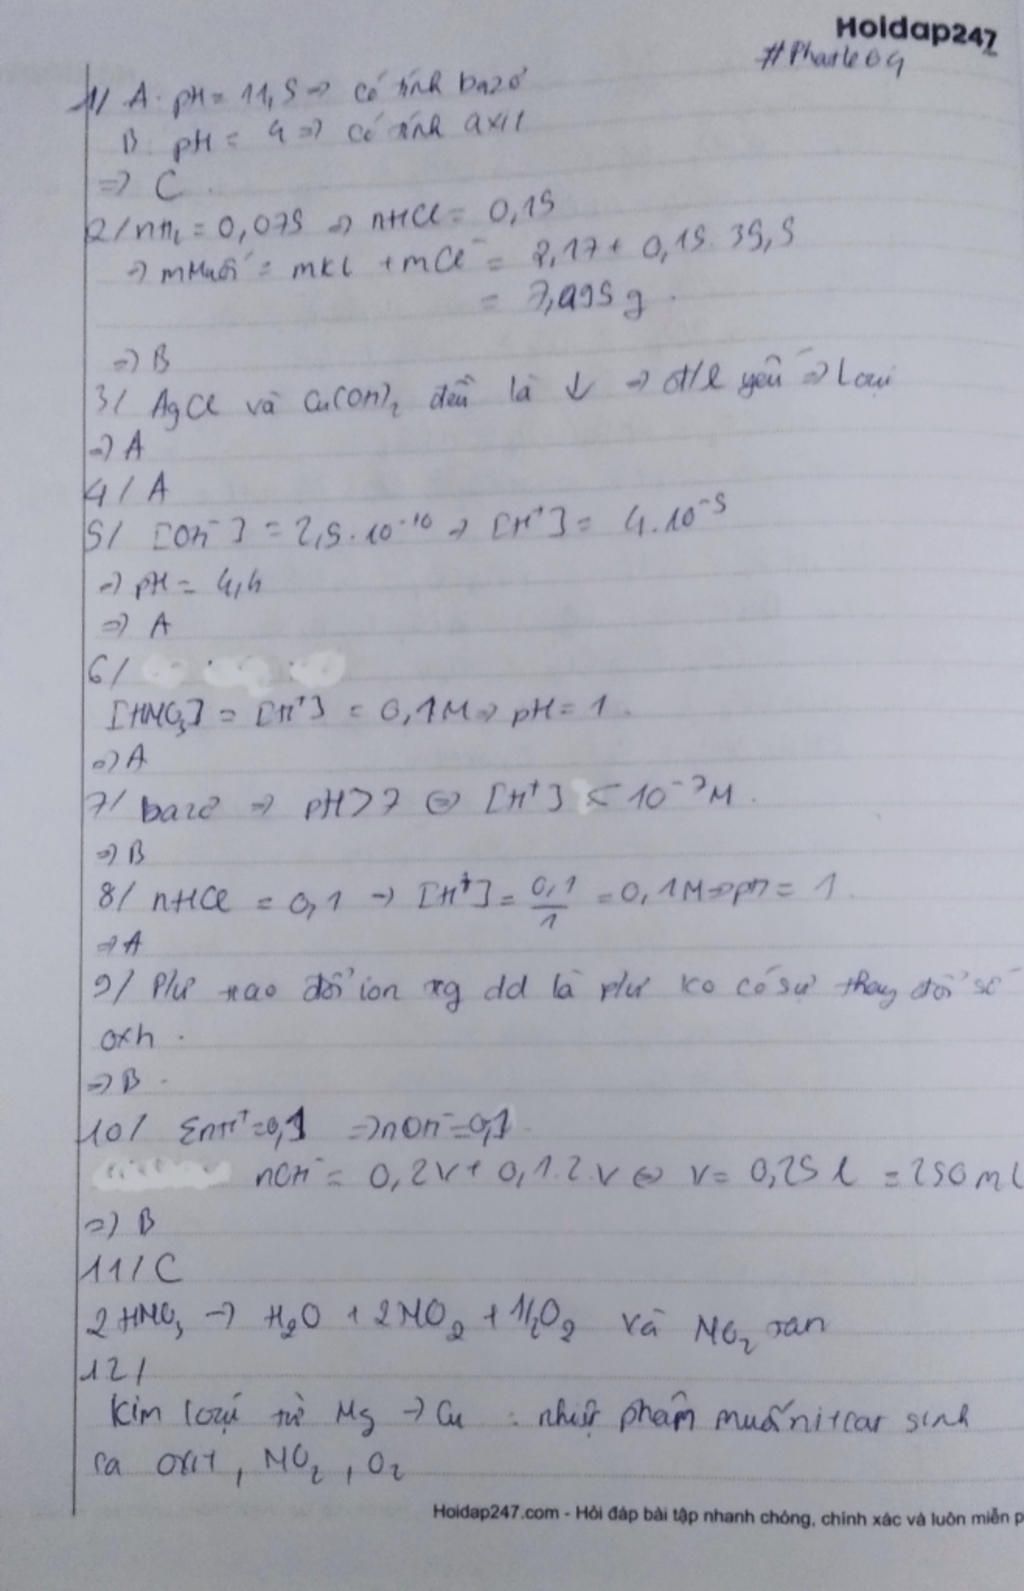 Hoidap247
#Pharle09
1/ A. pH = 11,5 => có tính bazơ
B. pH = 4 => có tính axit
=> C.
2/ nH₂ = 0,075 => nHCl = 0,15
=> mMuối = mKl + mCl⁻ = 2,17 + 0,15.35,5
= 7,495 g.
=> B
3/ AgCl và Cu(OH)₂ đều là ↓ => đ/l yếu => Loại
=> A
4/ A
5/ [OH⁻] = 2,5.10⁻¹⁰ => [H⁺] = 4.10⁻⁵
=> pH = 4,4
=> A
6/
[HNO₃] = [H⁺] = 0,1M => pH = 1.
=> A
7/ bazơ => pH > 7 <=> [H⁺] < 10⁻⁷M.
=> B
8/ nHCl = 0,1 → [H⁺] = 0,1/1 = 0,1M => pH = 1.
=> A
9/ P/ư trao đổi ion trg dd là p/ư ko có sự thay đổi số
oxh.
=> B.
10/ ΣnH⁺ = 0,1 => nOH⁻ = 0,1.
nOH⁻ = 0,2V + 0,1.2.V <=> V = 0,25 l = 250 ml
=> B
11/ C
2HNO₃ → H₂O + 2NO₂ + 1/2O₂ và NO₂ tan
12/
Kim loại từ Mg → Cu : nhiệt phân muối nitrat sinh
ra oxit, NO₂, O₂
Hoidap247.com - Hỏi đáp bài tập nhanh chóng, chính xác và luôn miễn p